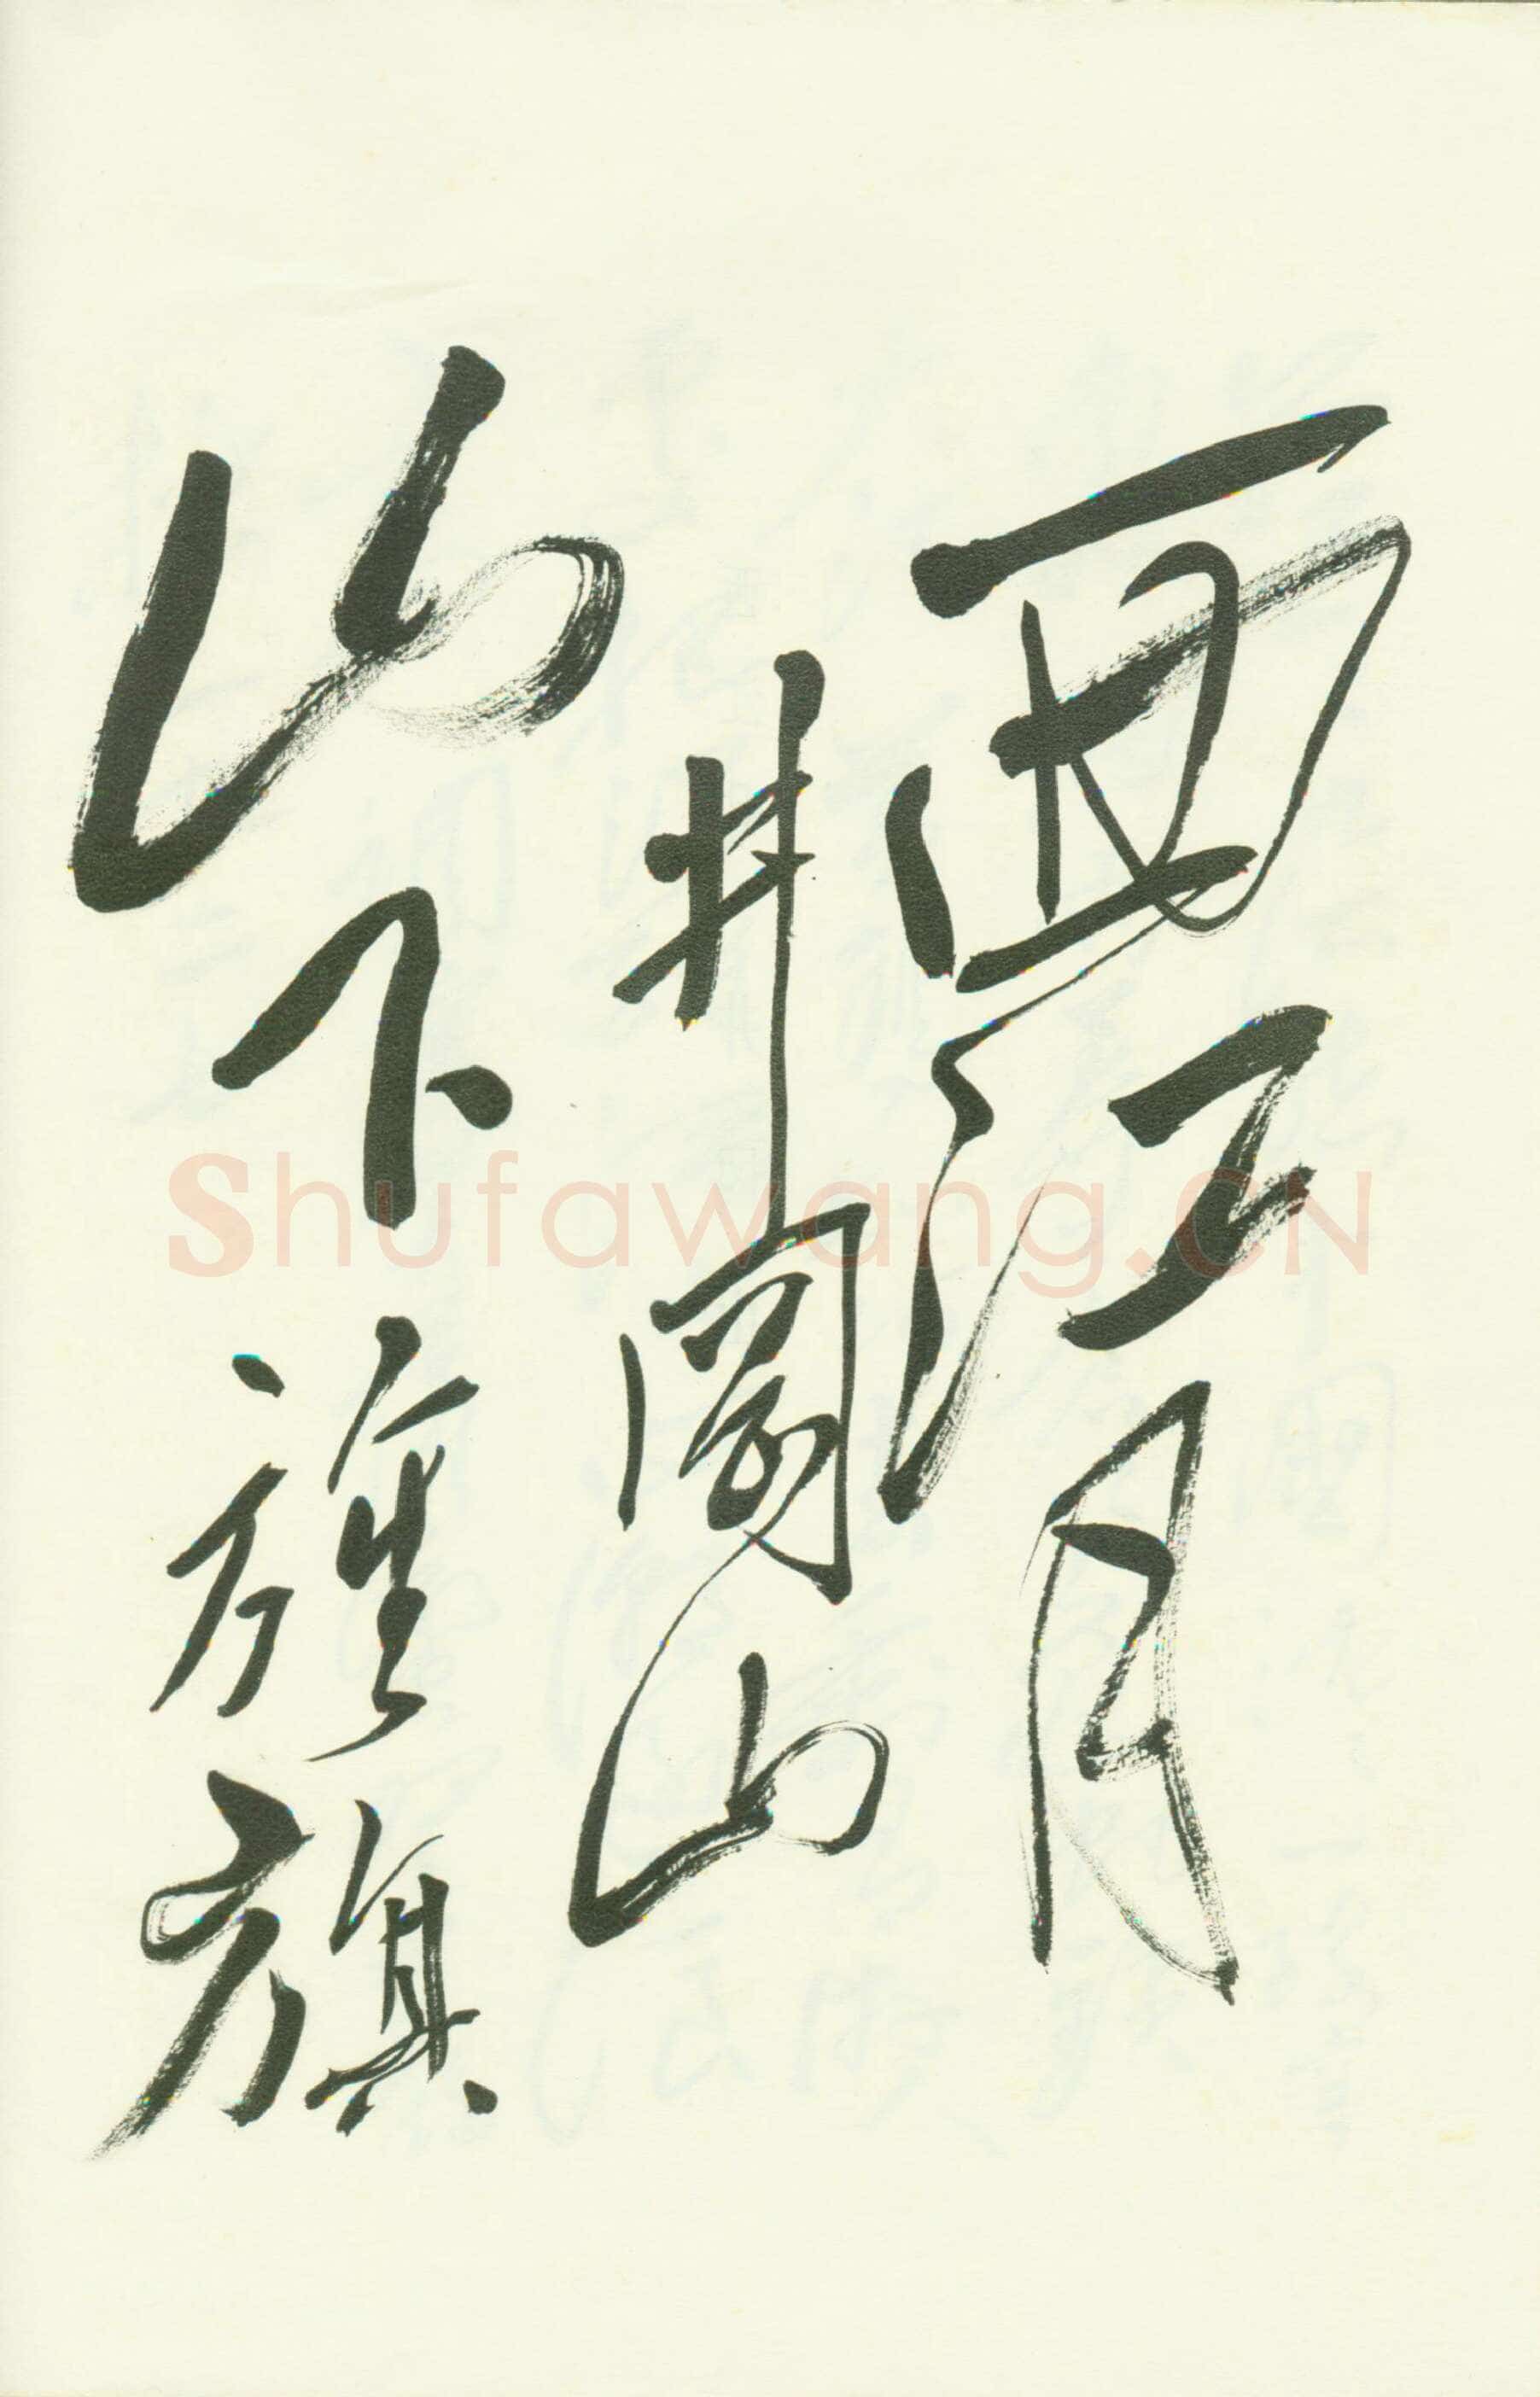 西江月
井岡山
山下旌旗
Shufawang.CN